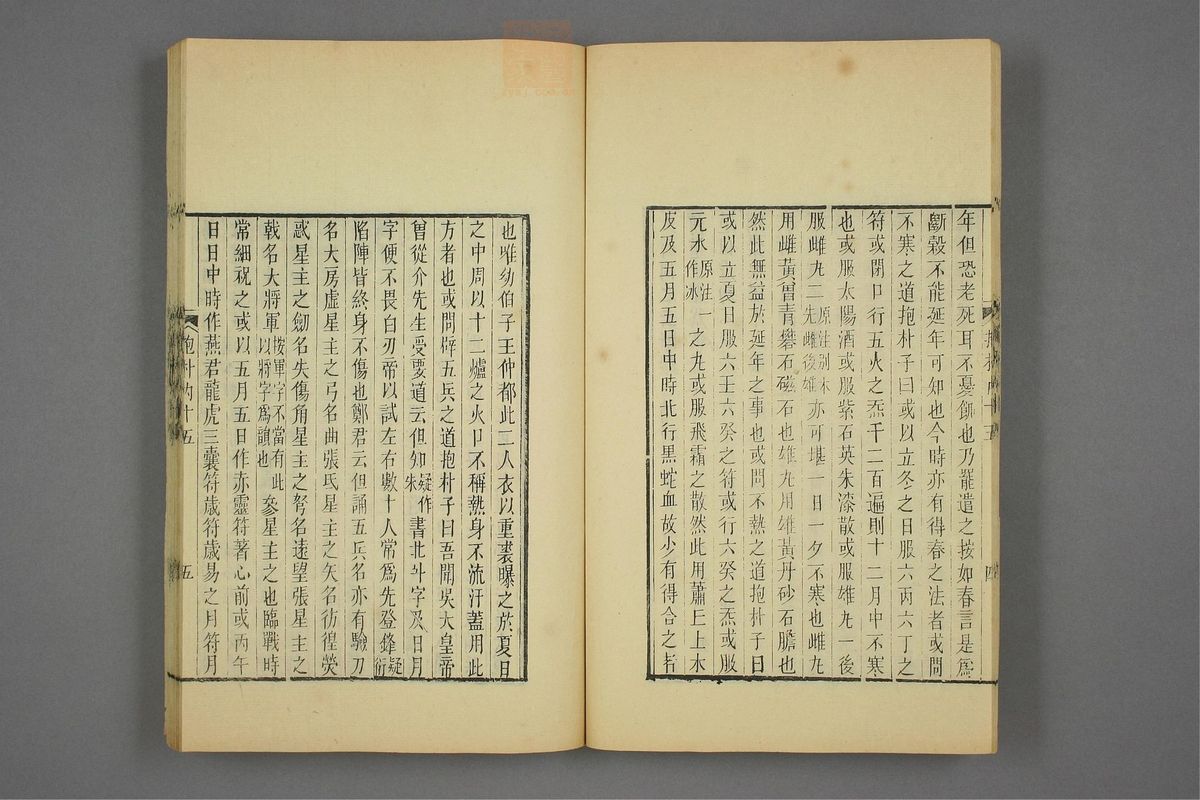 年但恐老死耳不憂飢也乃罷遣之按如春言是爲
斷穀不能延年可知也今時亦有得春之法者或問
不寒之道抱朴子曰或以立冬之日服六丙六丁之
符或閉口行五火之炁千二百遍則十二月中不寒
也或服太陽酒或服紫石英朱漆散或服雄丸一後
服雌丸二原注別本先雌後雄亦可堪一日一夕不寒也雌丸
用雌黃曾青礬石磁石也雄丸用雄黃丹砂石膽也
然此無益於延年之事也或問不熱之道抱朴子曰
或以立夏日服六壬六癸之符或行六癸之炁或服
元水原注一作冰之丸或服飛霜之散然此用蕭丘上木
皮及五月五日中時北行黑蛇血故少有得合之者
也唯幼伯子王仲都此二人衣以重裘曝之於夏日
之中周以十二爐之火口不稱熱身不流汗蓋用此
方者也或問辟五兵之道抱朴子曰吾聞吳大皇帝
曾從介先生受要道云但知疑作朱書北斗字及日月
字便不畏白刃帝以試左右數十人常爲先登鋒疑衍
陷陣皆終身不傷也鄭君云但誦五兵名亦有驗刀
名大房虛星主之弓名曲張氐星主之矢名彷徨熒
惑星主之劒名失傷角星主之弩名遠望張星主之
戟名大將軍按軍字不當有此以將字爲韻也參星主之也臨戰時
常細祝之或以五月五日作赤靈符著心前或丙午
日日中時作燕君龍虎三囊符歲符歲易之月符月
抱朴內十五
五
四